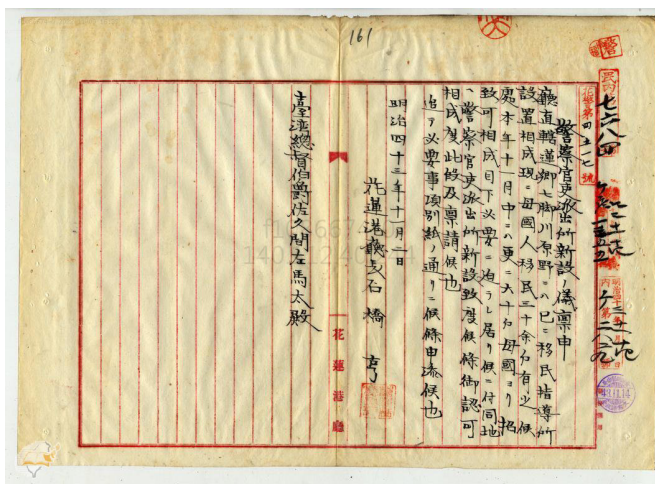 161
民內七六八四
花警第四五一七號
警察官吏派出所新設ノ儀稟申
廳直轄蓮鄉七脚川原野ニハ已ニ移民指導所
設置相成現ニ母國人移民三十余名有之候
處本年十一月中ニハ更ニ六十名母國ヨリ招
致可相成目下必要ニ迫ラレ居リ候ニ付同地
ヘ警察官吏派出所新設致度候條御認可
相成度此段及稟請候也
追テ必要事項別紙ノ通リニ候條申添候也
明治四十三年十一月二日
花蓮港廳長石橋亨
臺灣總督伯爵佐久間左馬太殿
花蓮港廳